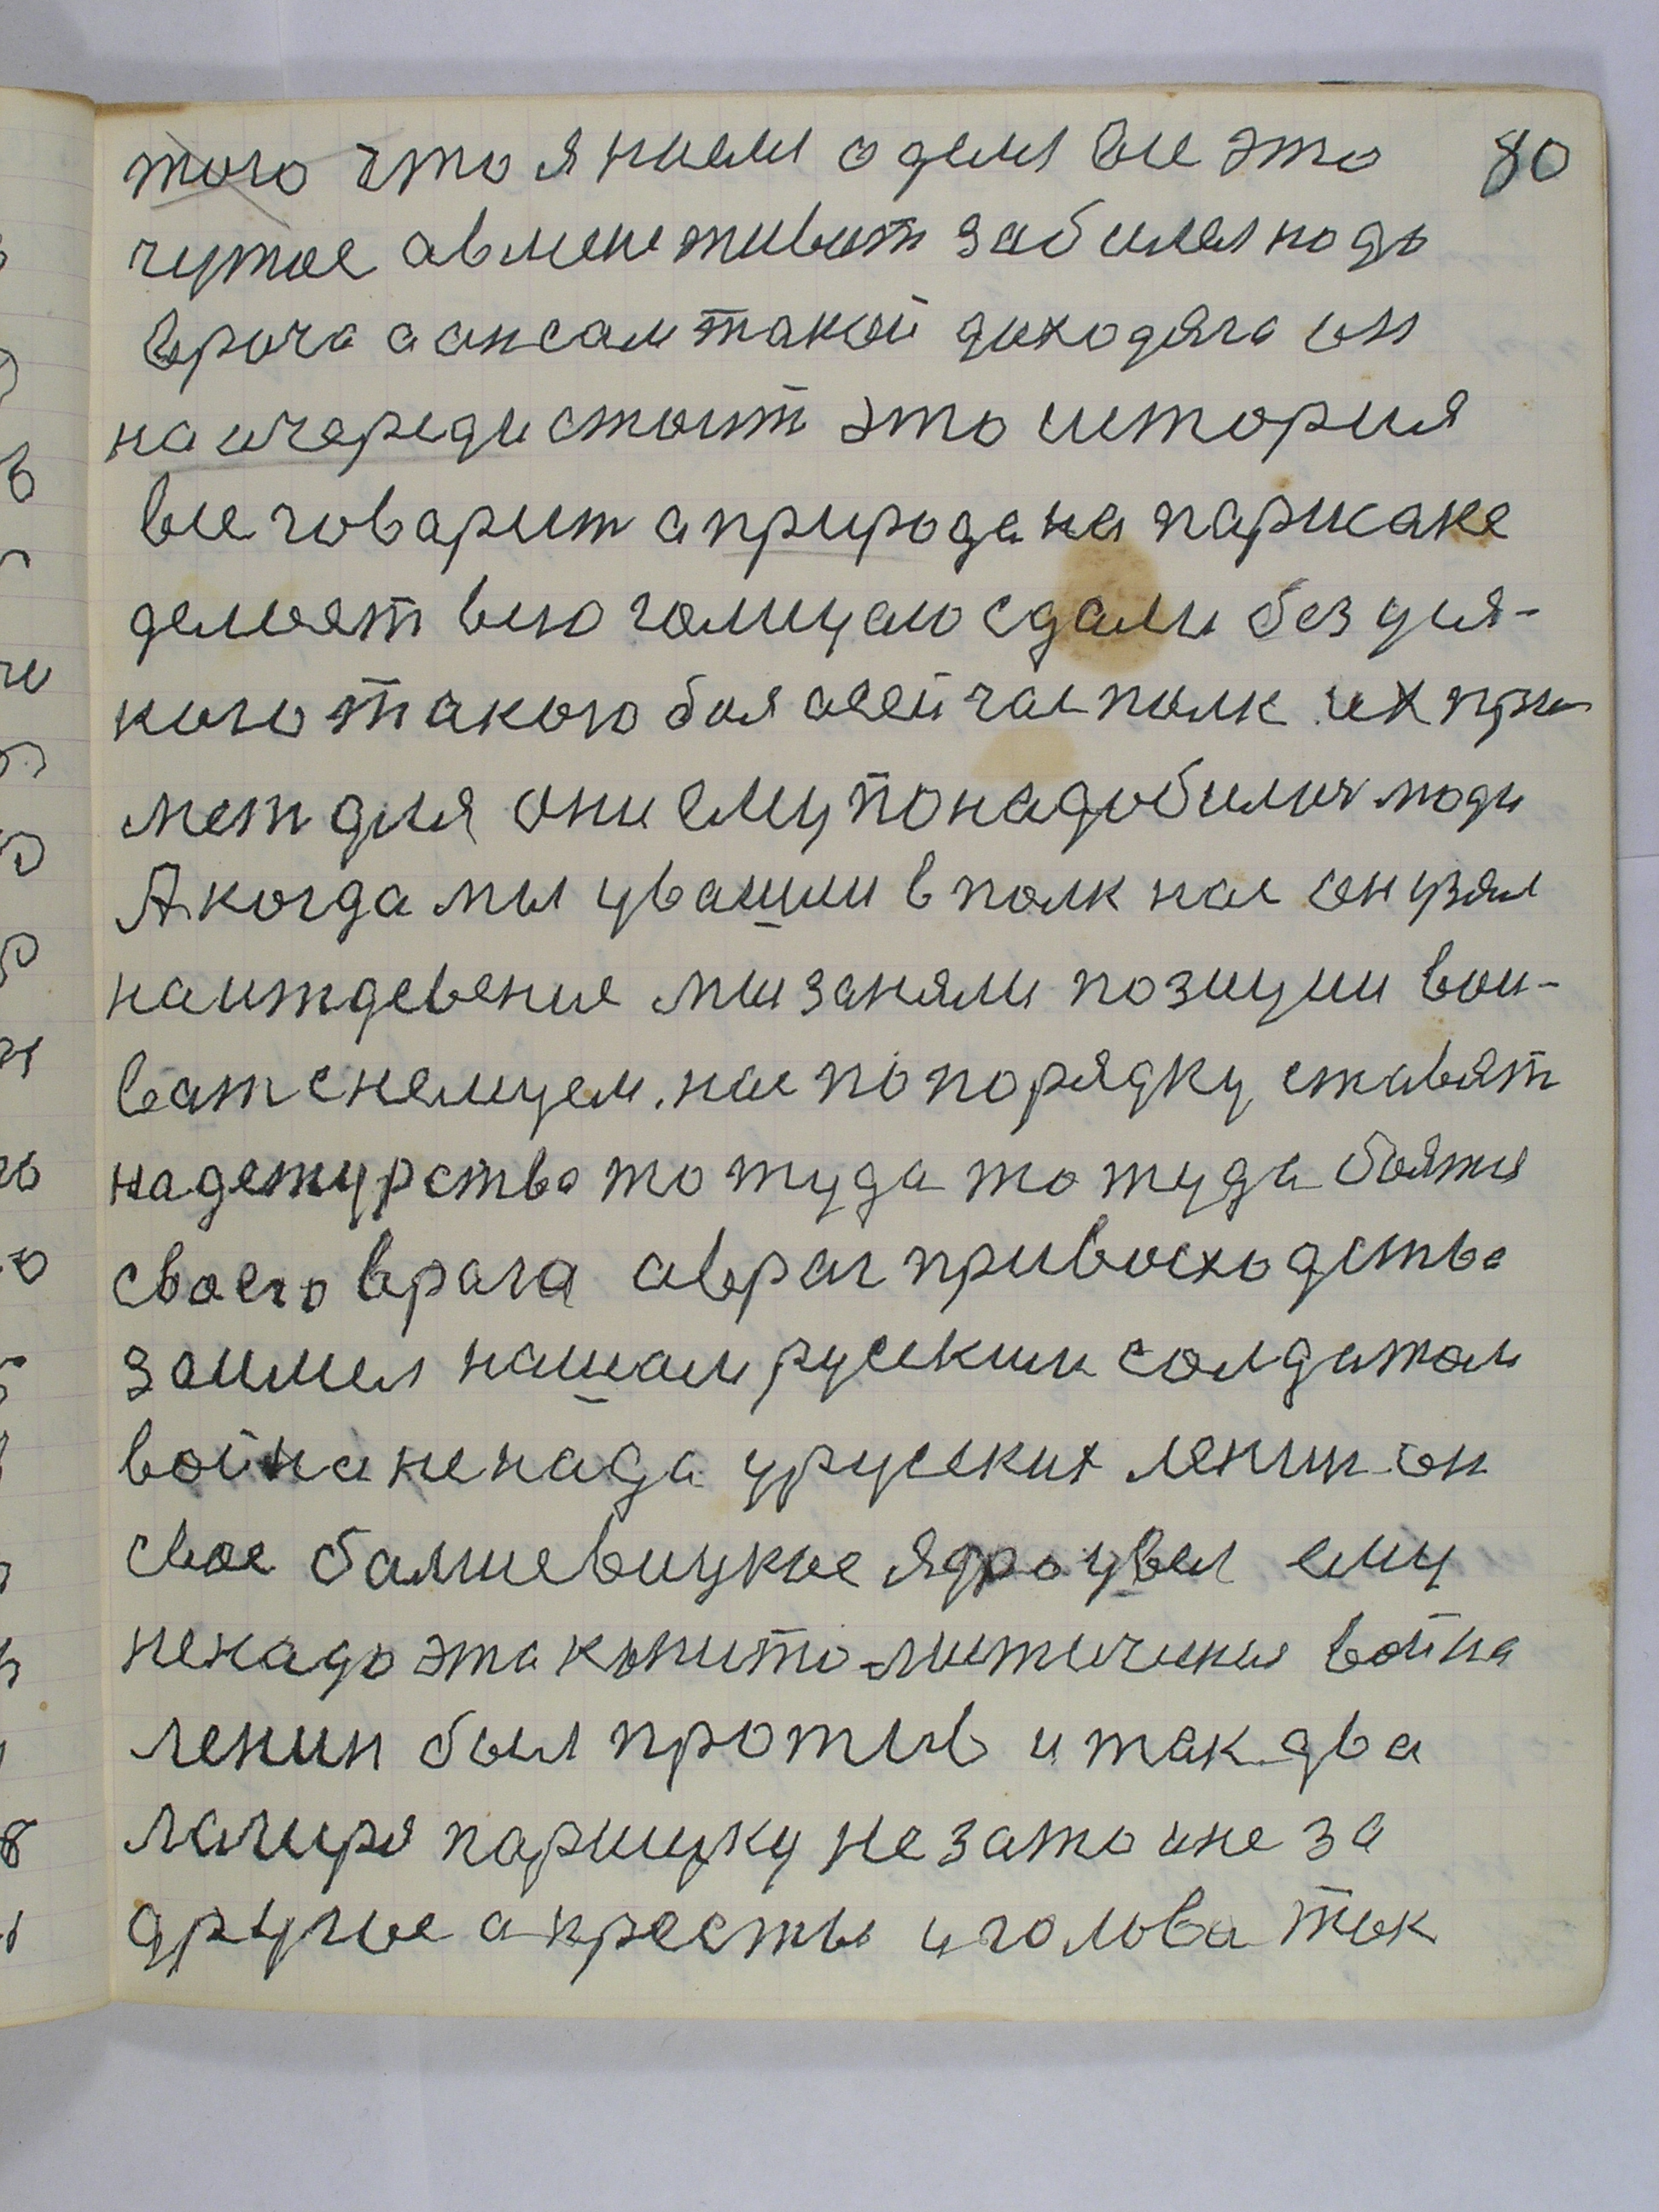 того что я нисил одел все это 80
чужое авмене живот забилел надо
врача а он сам такой доходяга он
на очереди стоит это история
все говарит а природа на парижаке
делает всю галицаю сдали без уся-
кого такого боя асейчас полк их при
мет для они ему понадобилис люди
А когда мы увашли в полк нас он узял
наитдевение мы заняли позицыи вои-
ват снемцем. нас по порядку ставят
надежурства то туда то туда боятся
своего врага авраг привосходства
заимел нашам русским солдатам
война ненада урусских ленин он
свае балшевицкие ядро увел ему
ненадо эта копитолистическия война
ленин был против и так два
лагиря паришуку не зато ине за
другие а кресты иголова так